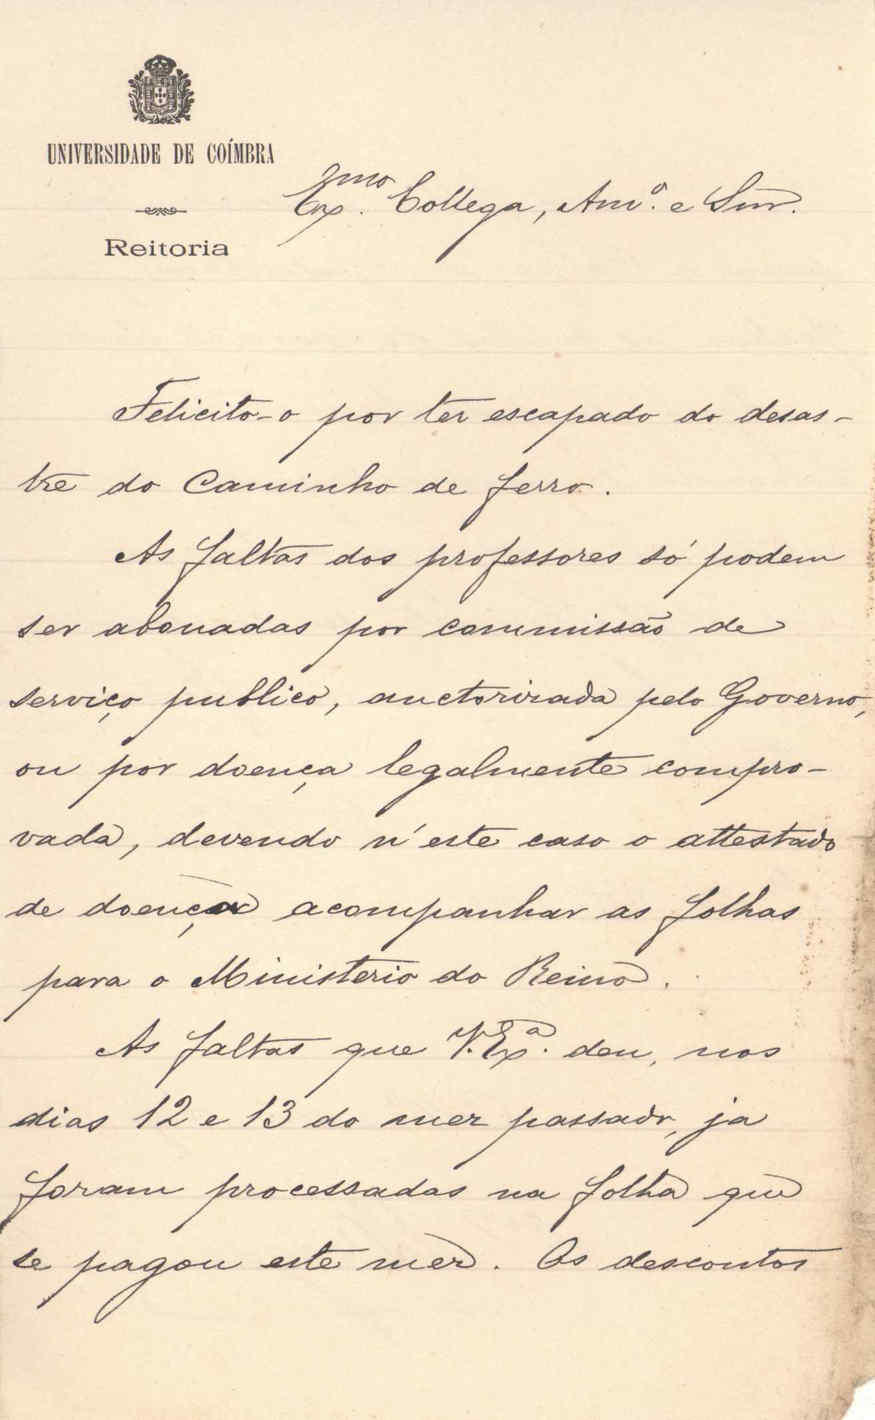 UNIVERSIDADE DE COÍMBRA
Reitoria
Ex.mo Collega, Am.º e Snr.
Felicito-o por ter escapado do desas-
tre do Caminho de ferro.
As faltas dos professores só podem
ser abonadas por commissão de
serviço publico, auctorizada pelo Governo,
ou por doença legalmente compro-
vada, devendo n'este caso o attestado
de doença acompanhar as folhas
para o Ministerio do Reino.
As faltas que V. Ex.ª deu, nos
dias 12 e 13 do mez passado, ja
foram processadas na folha que
se pagou este mez. Os descontos